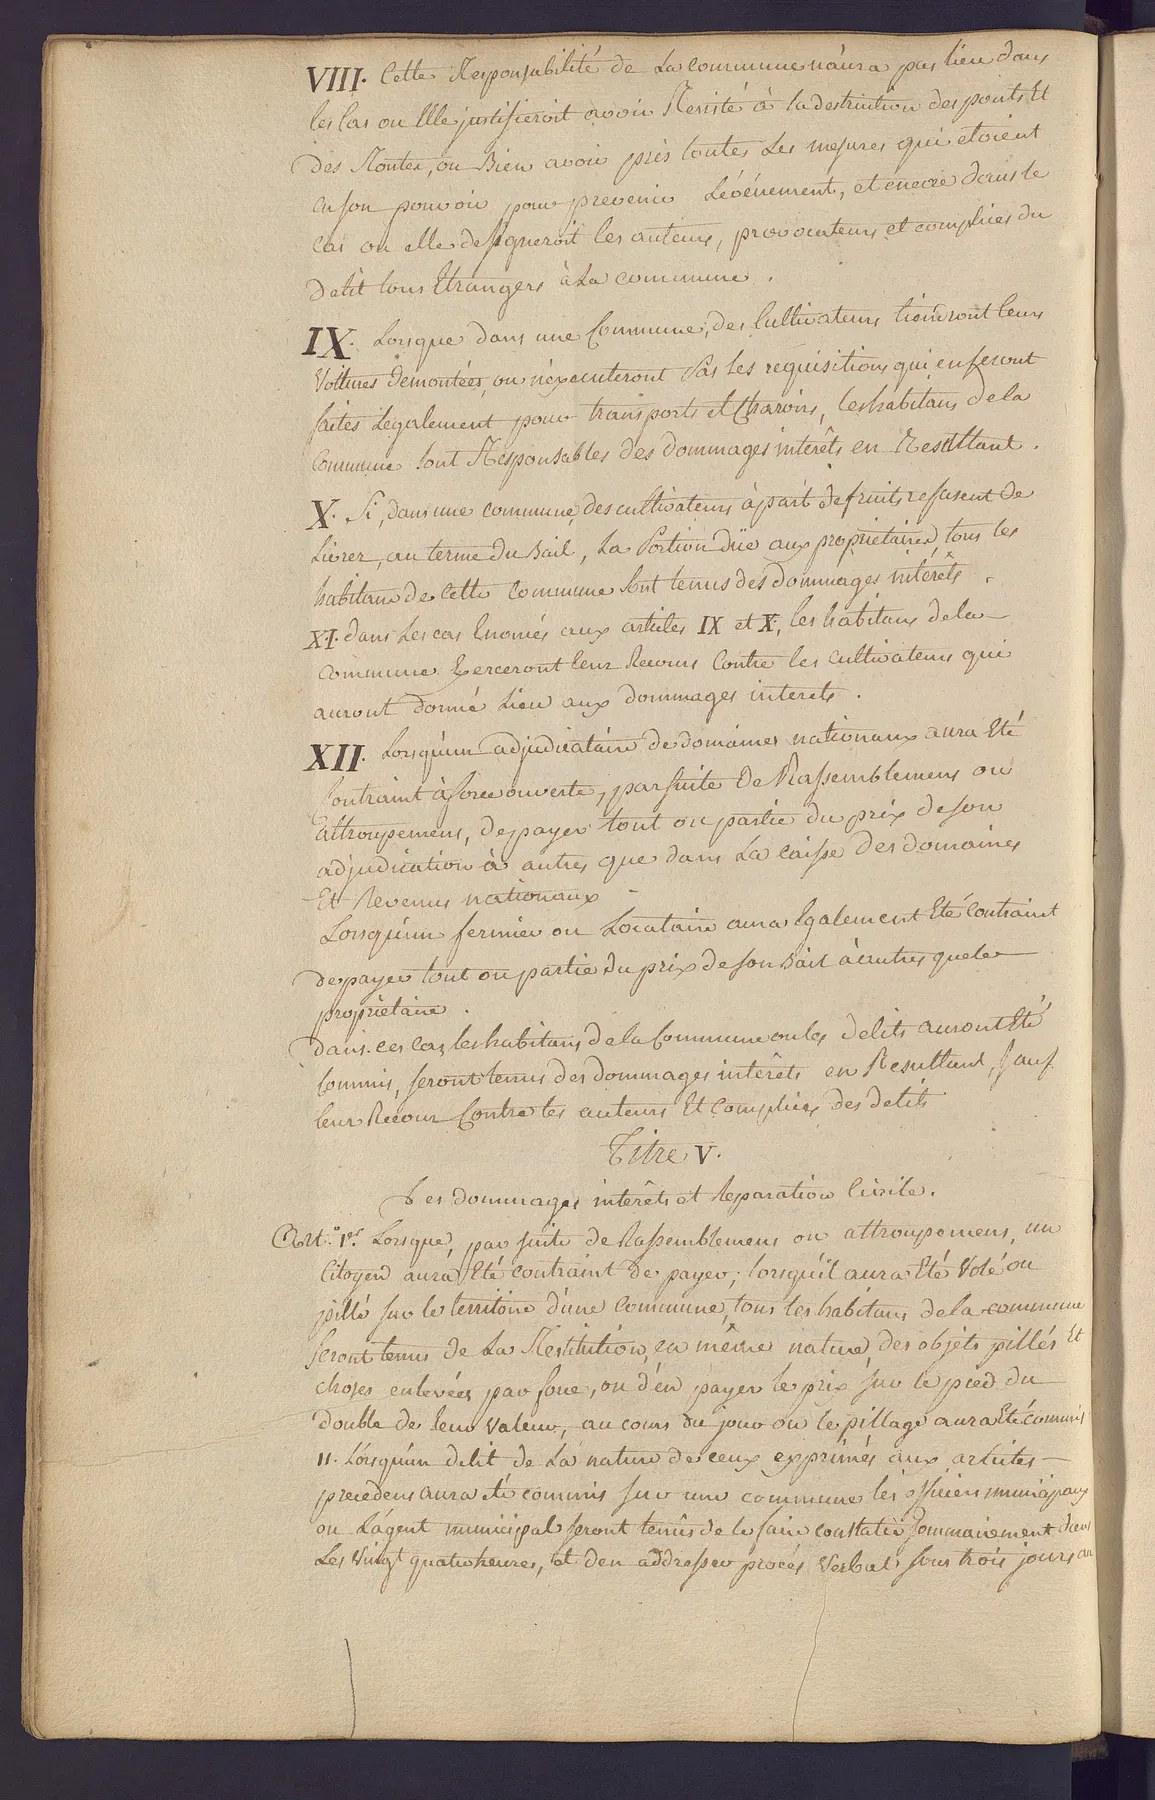 VIII. Cette Responsabilité de La commune n'aura pas lieu dans
les cas ou Elle justifieroit avoir Resisté à la destruction des ponts Et
Des Routes, ou Bien avoir pris toutes Les mesures qui etoient
en son pouvoir pour prevenir L'événement, et encore dans le
cas ou elle designeroit les auteurs, provocateurs et complices du
Délit tous Etrangers à La commune.
IX. Lorsque dans une Commune, des Cultivateurs tiendront leurs
Voitures Demontées, ou n'éxecuteront Pas les requisitions qui en seront
faites Legalement pour transports et Charois, les habitans de la
Commune sont Responsables des dommages interêts en Resultant.
X. Si, dans une commune, des cultivateurs à part de fruits refusent de
Livrer, au terme du Bail, La Portion düe aux proprietaires, tous les
habitans de Cette Commune sont tenus des dommages interêts.
XI. dans Les cas Enoncés aux articles IX et X, les habitans de la
commune Exerceront leur Recours Contre les cultivateurs qui
auront donné Lieu aux dommages interets.
XII. Lorsqu'un adjudicataire de domaines nationaux aura Eté
Contraint à force ouverte, par suite de Rassemblemens ou
attroupemens, de payer tout ou partie du prix de son
adjudication à autres que dans La caisse Des domaines
Et Revenus nationaux
Lorsqu'un fermier ou Locataire aura Egalement Eté Contraint
de payer tout ou partie du prix de son Bail à autres que le
proprietaire.
dans ces cas, les habitans de la Commune ou les delits auront Eté
Commis, seront tenus des dommages interêts en Resultant, sauf
leur Recour Contre les auteurs Et Complices des delits
Titre V.
Des dommages interêts et Reparation Civile.
Art.º 1er. Lorsque, par suite de Rassemblemens ou attroupemens, un
Citoyen aura Eté contraint de payer; lorsqu'il aura Eté Volé ou
pillé sur le territoire d'une Commune, tous les habitans de la commune
seront tenus de La Restitution, en même nature, des objets pillés Et
choses enlevées par force, ou d'en payer le prix sur le pied du
double de leur Valeur, au cours du jour ou le pillage aura Eté commis
II. Lorsqu'un delit de La nature de ceux exprimés aux articles
precedens aura été commis sur une commune les officiers municipaux
ou L'agent municipal seront tenus de le faire constater sommairement dans
Les Vingt quatre heures, et d'en addresser procés Verbal sous trois jours au